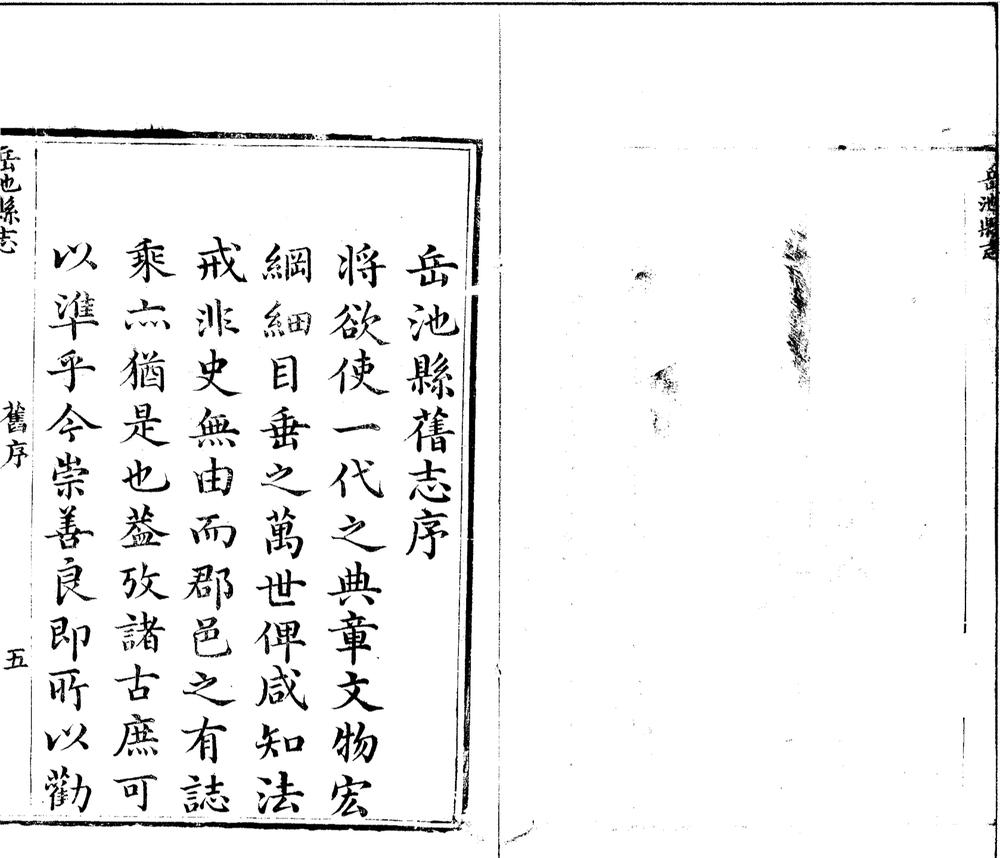 岳池縣志
岳池縣舊志序
将欲使一代之典章文物宏
綱細目垂之萬世俾咸知法
戒非史無由而郡邑之有誌
乘亦猶是也葢攷諸古庶可
以準乎今崇善良即所以勸
岳池縣志
舊序
五